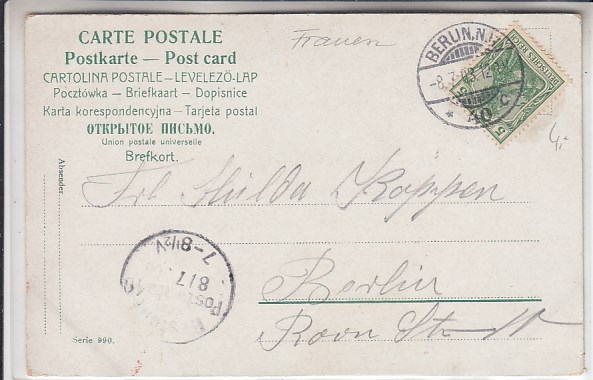 CARTE POSTALE
Postkarte — Post card
CARTOLINA POSTALE – LEVELEZŐ-LAP
Pocztówka – Briefkaart – Dopisnice
Karta korespondencyjna – Tarjeta postal
ОТКРЫТОЕ ПИСЬМО.
Union postale universelle
Brefkort.
Frauen
BERLIN, N.
40
DEUTSCHES REICH
5
4,-
Absender:
Frl Hulda Köppen
7-8½V
8 7
Berlin
Roon Str
Serie 990.